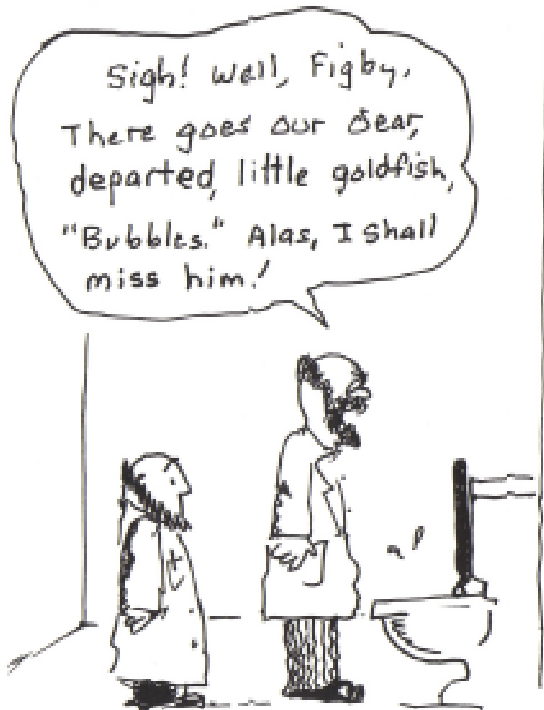 Sigh! Well, Figby.
There goes our dear,
departed, little goldfish,
"Bubbles." Alas, I shall
miss him!